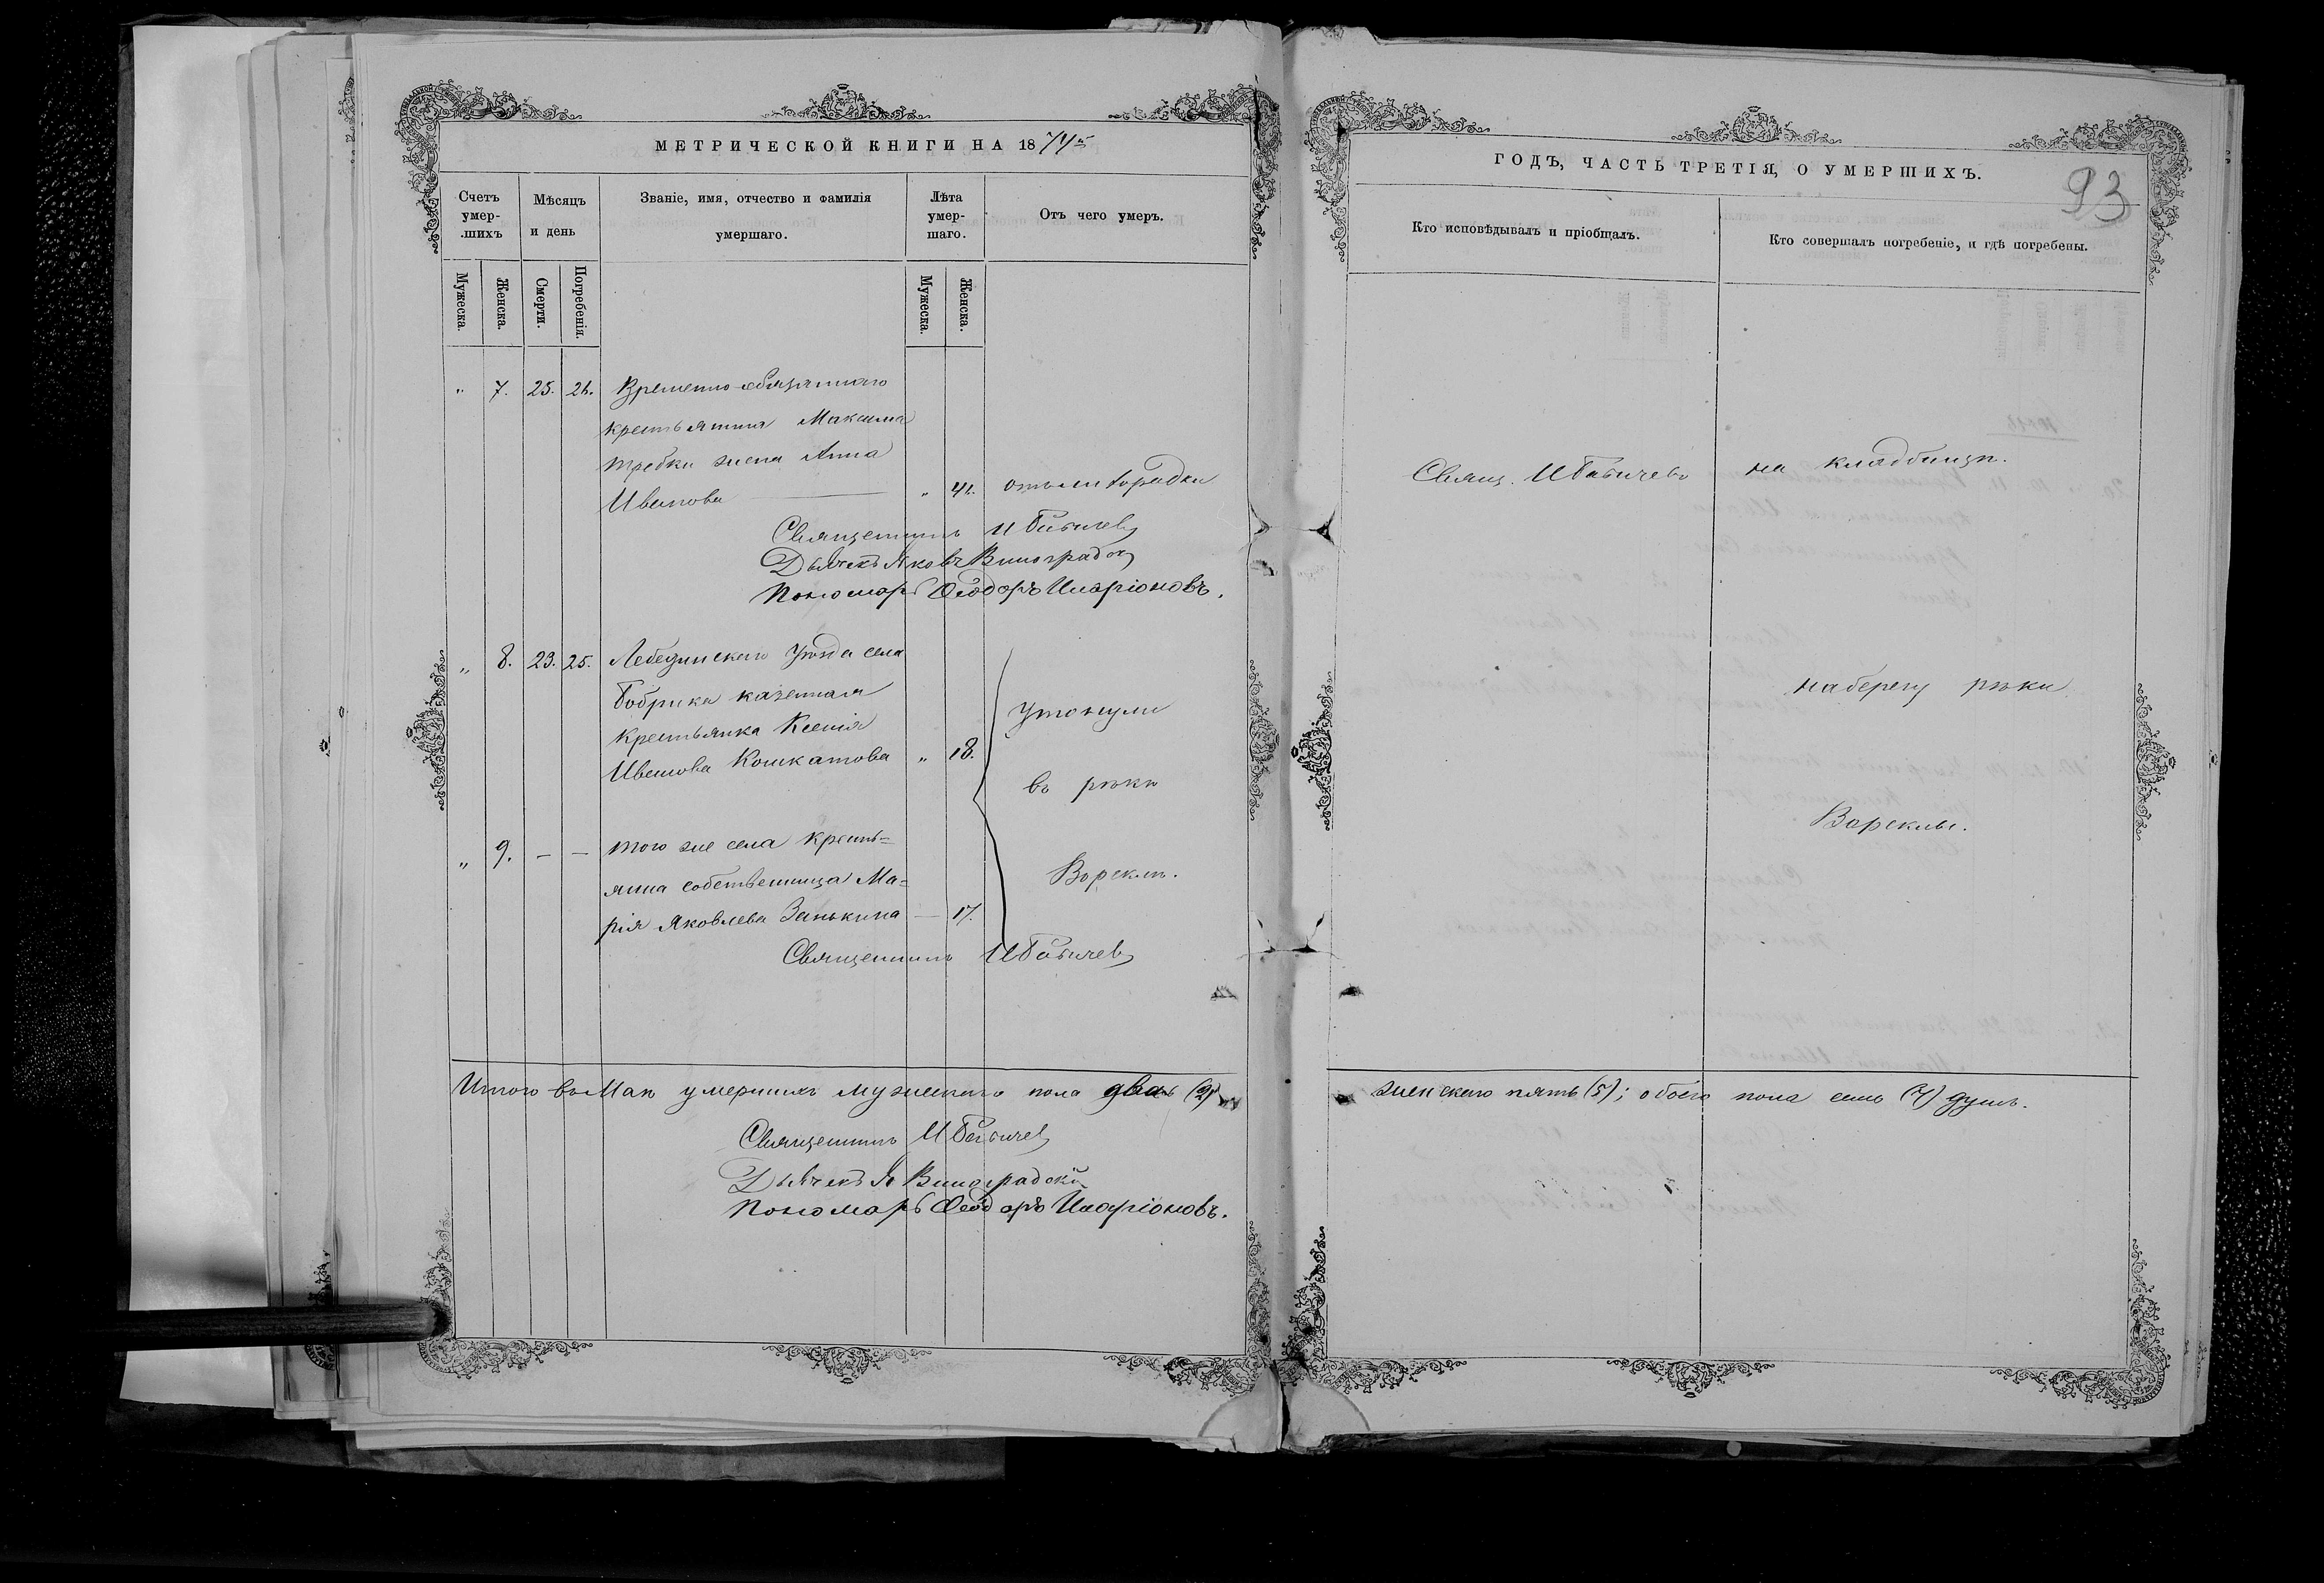 МЕТРИЧЕСКОЙ КНИГИ НА 1871й
Счетъ умер-шихъ
Мѣсяцъ и день
Званіе, имя, отчество и фамилія умершаго.
Лѣта умер-шаго.
Отъ чего умеръ.
Мужеска.
Женска.
Смерти.
Погребенія.
Мужеска.
Женска.
„ 7. 25. 26. Временно-обязаннаго
крестьянина Максима
жена Анна
Иванова „ 41. отъ лихорадки
Священникъ И Бабичевъ
Дьячекъ Яковъ Виноградск
Пономарь Ѳеодоръ Иларіоновъ.
„ 8. 23. 25. Лебединскаго Уѣзда села
Бобрика казенная
крестьянка Ксенія
Иванова Кошкатова „ 18.
Утонули
въ рѣкѣ
Ворсклѣ.
„ 9. — — того же села кресть=
янка собственница Ма=
рія Яковлева Занькина — 17.
Священникъ И Бабичевъ
Итого въ Маѣ умершихъ мужескаго пола два (2)
Священникъ И Бабичевъ
Дьячекъ Я Виноградскій
Пономарь Ѳеодоръ Иларіоновъ.
ГОДЪ, ЧАСТЬ ТРЕТІЯ, О УМЕРШИХЪ.
93
Кто исповѣдывалъ и пріобщалъ.
Кто совершалъ погребеніе, и гдѣ погребены.
Свящ. И Бабичевъ на кладбищѣ.
на берегу рѣки
Ворсклы.
женскаго пять (5); обоего пола семь (7) душъ.